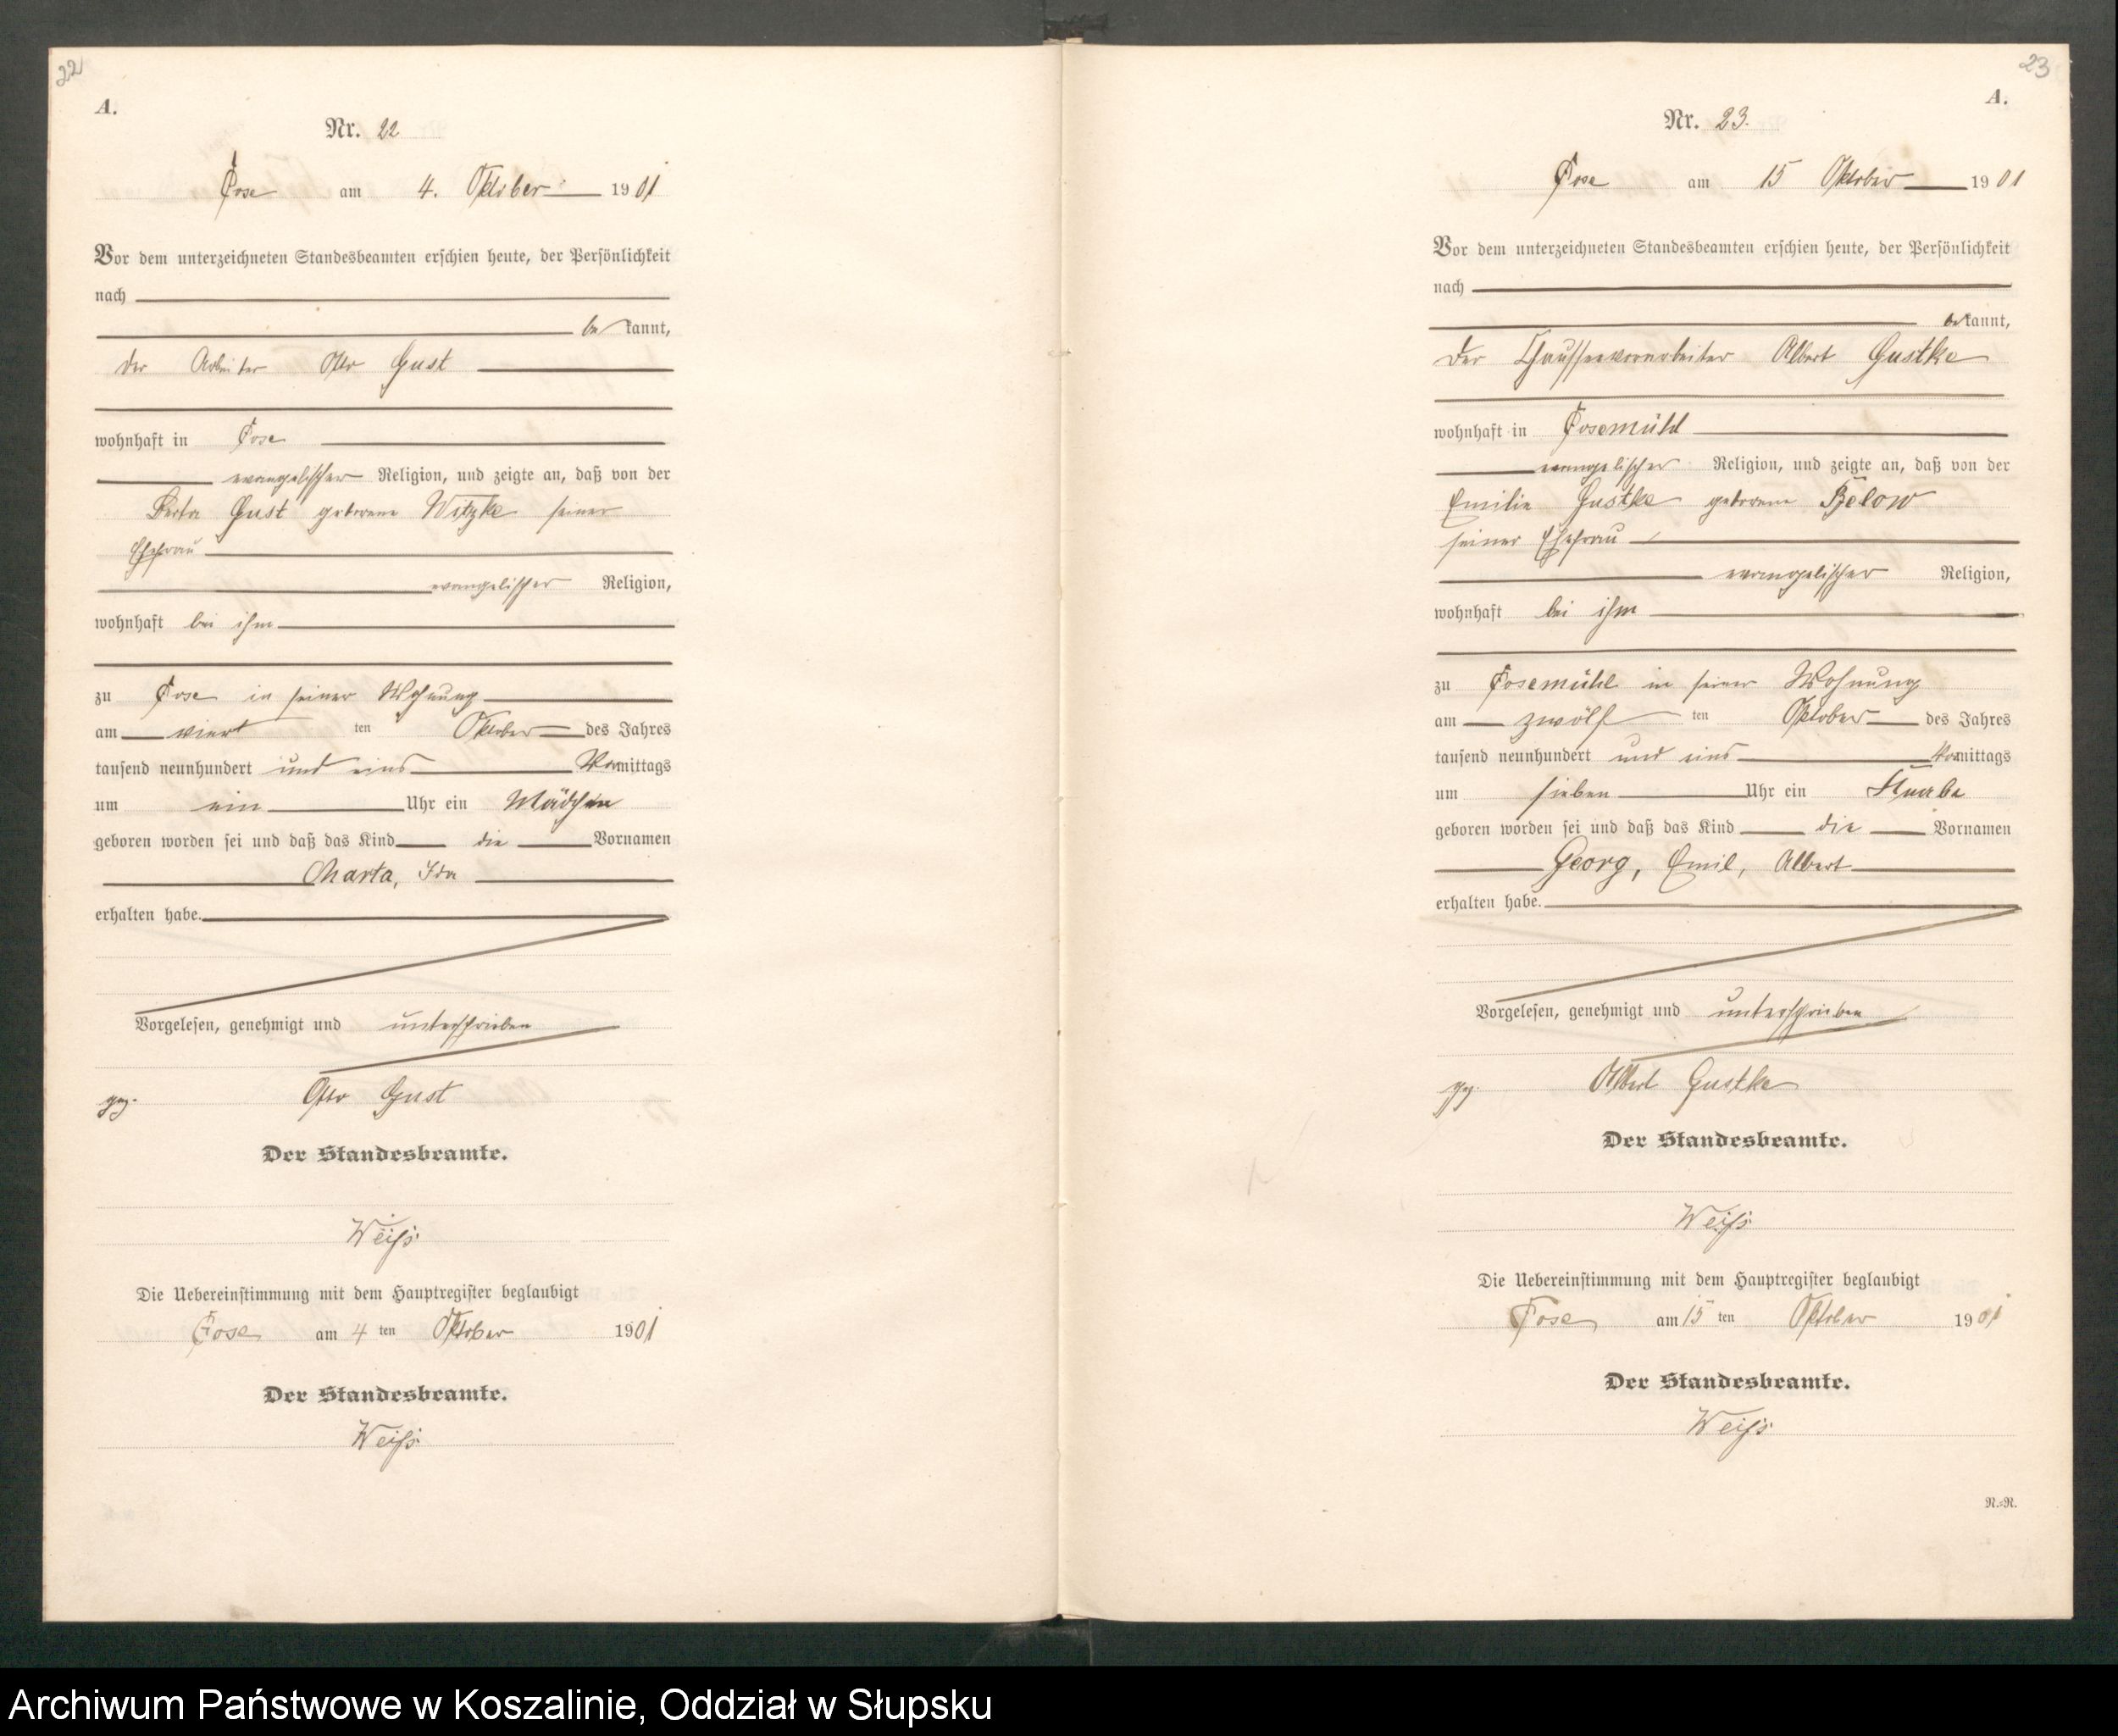 22
A.
Nr. 22
Pose am 4. Oktober 1901
Vor dem unterzeichneten Standesbeamten erschien heute, der Persönlichkeit
nach
bekannt,
der Arbeiter Otto Gust
wohnhaft in Pose
evangelischer Religion, und zeigte an, daß von der
Berta Gust geborene Witzke seiner
Ehefrau
evangelischer Religion,
wohnhaft bei ihm
zu Pose in seiner Wohnung
am viert ten Oktober des Jahres
tausend neunhundert und eins Vormittags
um ein Uhr ein Mädchen
geboren worden sei und daß das Kind die Vornamen
Marta, Ida
erhalten habe.
Vorgelesen, genehmigt und unterschrieben
gez. Otto Gust
Der Standesbeamte.
Weiß
Die Uebereinstimmung mit dem Hauptregister beglaubigt
Pose am 4 ten Oktober 1901
Der Standesbeamte.
Weiß
23
A.
Nr. 23.
Pose am 15 Oktober 1901
Vor dem unterzeichneten Standesbeamten erschien heute, der Persönlichkeit
nach
bekannt,
der Chausseevorarbeiter Albert Gustke
wohnhaft in Posemühl
evangelischer Religion, und zeigte an, daß von der
Emilie Gustke geborene Below
seiner Ehefrau
evangelischer Religion,
wohnhaft bei ihm
zu Posemühl in seiner Wohnung
am zwölf ten Oktober des Jahres
tausend neunhundert und eins Vormittags
um sieben Uhr ein Knabe
geboren worden sei und daß das Kind die Vornamen
Georg, Emil, Albert
erhalten habe.
Vorgelesen, genehmigt und unterschrieben
gez. Albert Gustke
Der Standesbeamte.
Weiß
Die Uebereinstimmung mit dem Hauptregister beglaubigt
Pose am 15 ten Oktober 1901
Der Standesbeamte.
Weiß
R.=R.
Archiwum Państwowe w Koszalinie, Oddział w Słupsku